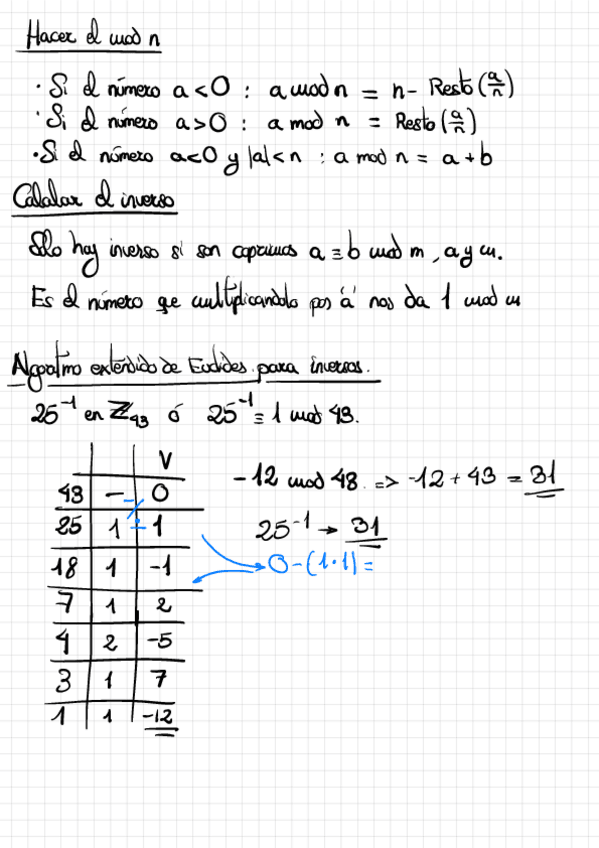 Hacer el mod n
· Si el número a < 0 : a mod n = n - Resto (a/n)
· Si el número a > 0 : a mod n = Resto (a/n)
· Si el número a<0 y |a| < n : a mod n = a + b
Calcular el inverso
Solo hay inverso si son coprimos a ≡ b mod m, a y m.
Es el número que multiplicandolo por 'a' nos da 1 mod m
Algoritmo extendido de Euclides para inversos.
25⁻¹ en ℤ₄₃ ó 25⁻¹ ≡ 1 mod 43.
V
43 – 0
25 1 1
18 1 -1
7 1 2
4 2 -5
3 1 7
1 1 -12
-12 mod 43. => -12 + 43 = 31
25⁻¹ → 31
0 - (1·1) =